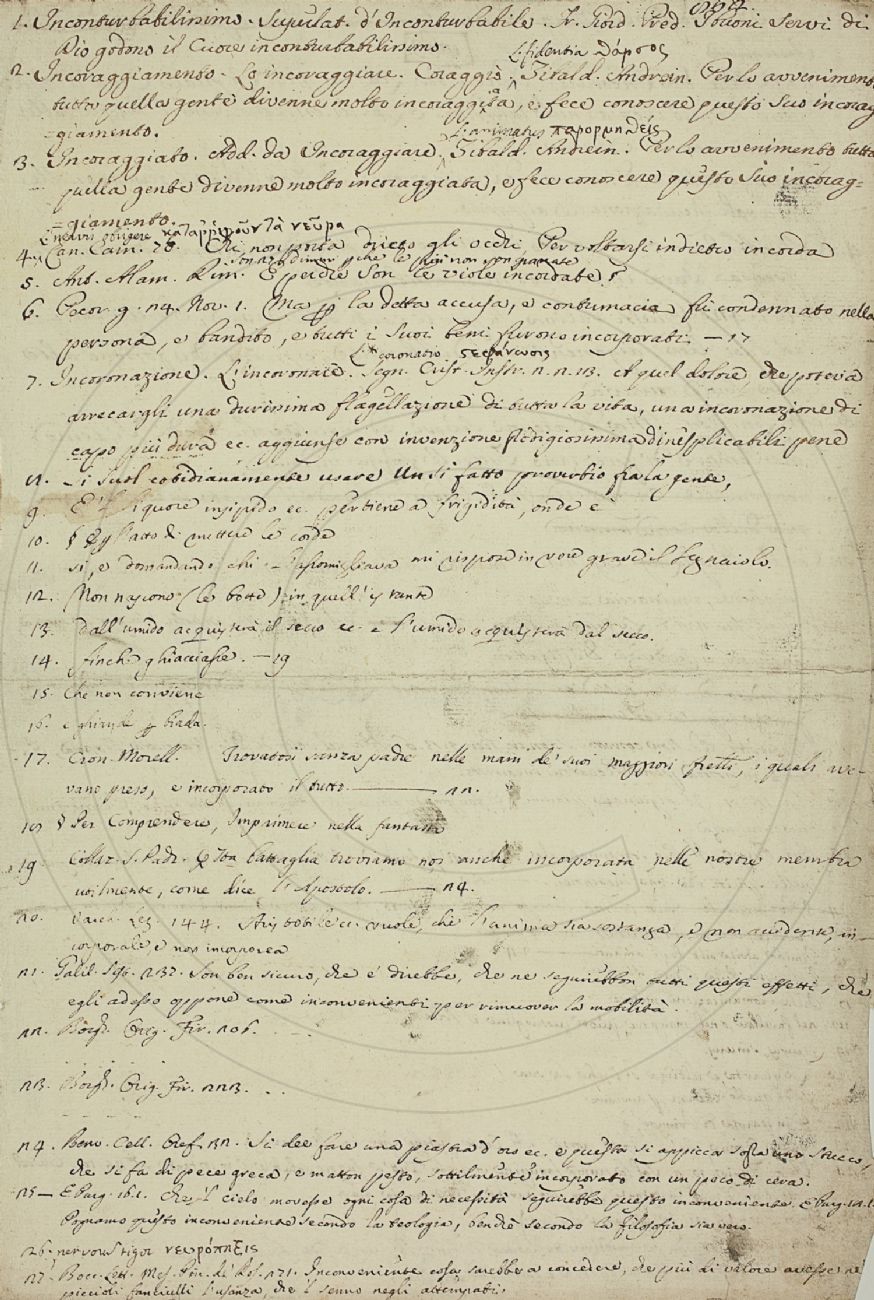 264.
1. Inconturbabilissimo. Superlat. d'Inconturbabile. Fr. Giord. Pred. I buoni servi di
Dio godono il Cuore inconturbabilissimo.
L. fidentia θάρσος
2. Incoraggiamento. Lo incoraggiare. Coraggio. Tibald. Andrein. Per lo avvenimento
tutta quella gente divenne molto incoraggiata, e fece conoscere questo suo incorag
=giamento.
L. animatus παρορμηθείς
3. Incoraggiato. Add. da Incoraggiare. Tibald. Andrein. Per lo avvenimento tutta
quella gente divenne molto incoraggiata, e fece conoscere questo suo incorag=
=giamento.
L. nervis
4. Can. Carn. 28. Chi non porta drieto gli occhi, Per voltarsi indietro incorda
5. Ant. Alam. Rim. E perchè son le viole incordate?
6. Pecor. g. 24. Nov. 1. Ma la detta accusa, e contumacia fu condennato nella
persona, e bandito, e tutti i suoi beni furono incorporati. — 17
L. coronatio στεφάνωσις
7. Incoronazione. L'incoronare. Segn. Crist. Instr. A quel dolore, che poteva
arrecargli una durissima flagellazione di tutta la vita, una incoronazione di
capo più dura ec. aggiunse con invenzione prodigiosissima d'inesplicabili pene
si suol cotidianamente usare un sì fatto proverbio fra la gente,
9. E' liquore insipido ec. pertiene a frigidità, onde è
10. § l'atto di mettere le corde
11. si, e domandando chi mi rispose in voce grave il Legnaiolo.
12. Non nascono (le botte) in quell'istante
13. dall'umido acquisterà il secco ec. e l'umido acquisterà dal secco.
14. finch. ghiacciasse. — 19
15. Che non conviene
16. e ghiande biada.
17. Cron. Morell. Trovatosi senza padre nelle mani de' suoi maggiori fratelli, i quali ave-
vano preso, e incorporato il tutto. — 22.
§ Per Comprendere, Imprimere nella fantasia
19. Collaz. S. Padr. Questa battaglia troviamo noi anche incorporata nelle nostre membra
utilmente, come dice l'Apostolo. — 24.
20. Varch. Lez. 144. Aristotile ec. vuole, che l'anima sia sostanza, e non accidente, in-
corporale, e non incorporea
21. Galil. Sist. 232. Son ben sicuro, che e' direbbe, che ne seguirebbon tutti questi effetti, che
egli adesso oppone come inconvenienti per rimuover la mobilità.
22. Borgh. Orig. Fir. 206.
23. Borgh. Orig. Fir. 223.
24. Benv. Cell. Oref. 32. Si dee fare una piastra d'oro ec. e questa si appicca sopra uno stucco,
che si fa di pece greca, e matton pesto, sottilmente incorporato con un poco di cera.
25 — E Purg. 16.1. Che 'l cielo movesse ogni cosa di necessità seguirebbe questo inconveniente. E Purg.
Pognamo questo inconveniente secondo la teologia, benchè secondo la filosofia sia vero.
26.
27. Bocc. Lett. 271. Inconveniente cosa sarebbe a concedere, che più di valore avesse ne'
piccioli fanciulli l'usanza, che 'l senno negli attempati.